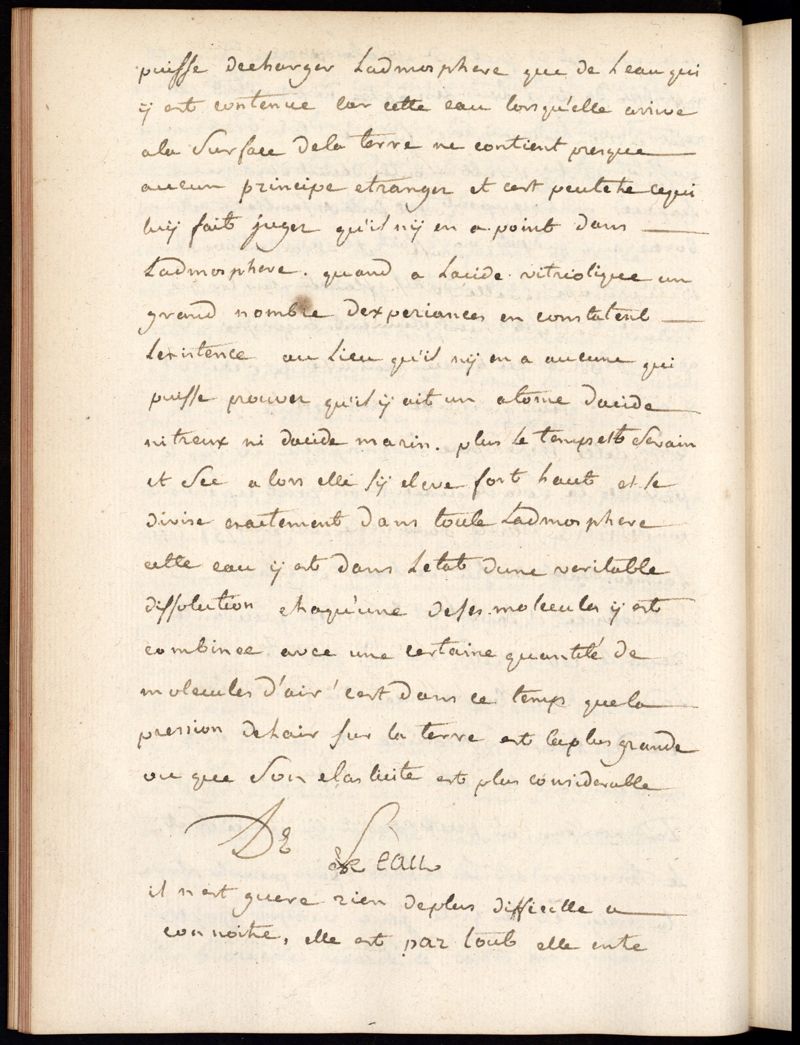 puisse decharger Ladmosphere que de Leau qui
ij est contenue Car cette eau lorsqu'elle arrive
a la Surface de la terre ne contient presque
aucun principe etranger et c'est peutetre ce qui
luy fait juger qu'il nij en a point dans
Ladmosphere. quand a Lacide vitriolique un
grand nombre dexperiances en constatent
Lexistence au Lieu qu'il nij en a aucune qui
puisse prouver qu'il ij ait un atome dacide
nitreux ni dacide marin. plus le temps est Serain
et Sec alors elle Sij eleve fort haut et se
divise exactement dans toute Ladmosphere
cette eau ij est dans Letat dune veritable
dissolution chaqu'une de ses molecules ij est
combinee avec une certaine quantité de
molecules d'air c'est dans ce temps que la
pression de Lair sur la terre est la plus grande
ou que Son elasticite est plus considerable
De
Leau
il n'est guere rien de plus difficille a
connoitre, elle est par tout elle entre